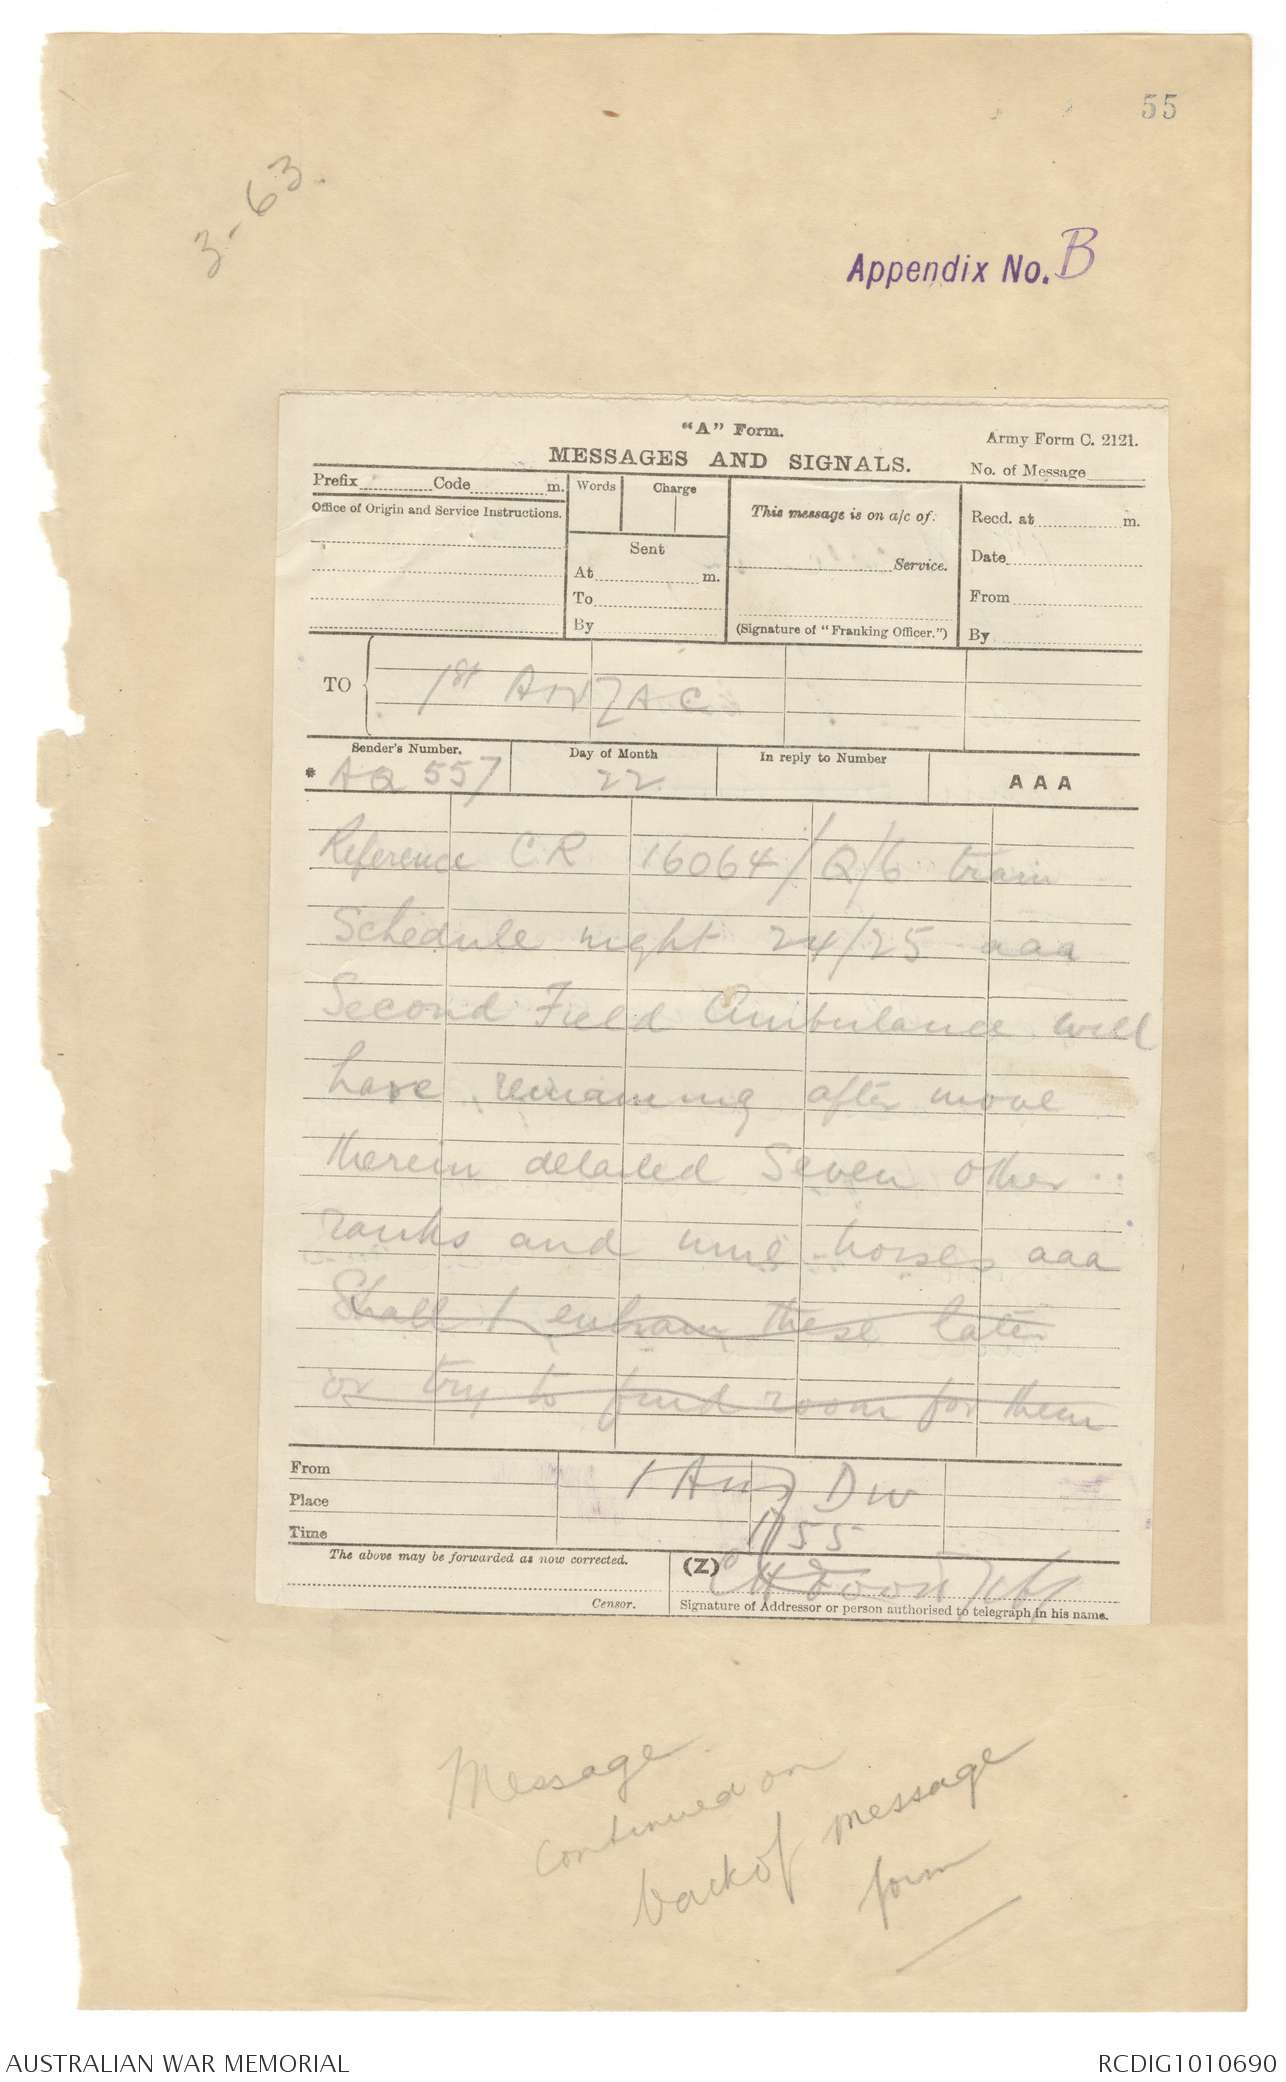 55
3-63.
Appendix No. B
"A" Form.
Army Form C. 2121.
MESSAGES AND SIGNALS.
No. of Message
Prefix Code m. Words Charge
This message is on a/c of:
Recd. at m.
Office of Origin and Service Instructions.
Sent
Service.
Date
At m.
To
From
By
(Signature of "Franking Officer.")
By
TO 1st ANZAC
Sender's Number. Day of Month In reply to Number
* AQ 557 22 AAA
Reference CR 16064/Q/6 train
Schedule night 24/25 aaa
Second Field Ambulance will
have remaining after move
therein detailed Seven other
ranks and nine horses aaa
Shall I entrain these later
or try to find room for them
From 1 Aus Div
Place
Time 1755
The above may be forwarded as now corrected. (Z)
Censor. Signature of Addressor or person authorised to telegraph in his name.
Message
continued on
back of message
form
AUSTRALIAN WAR MEMORIAL RCDIG1010690